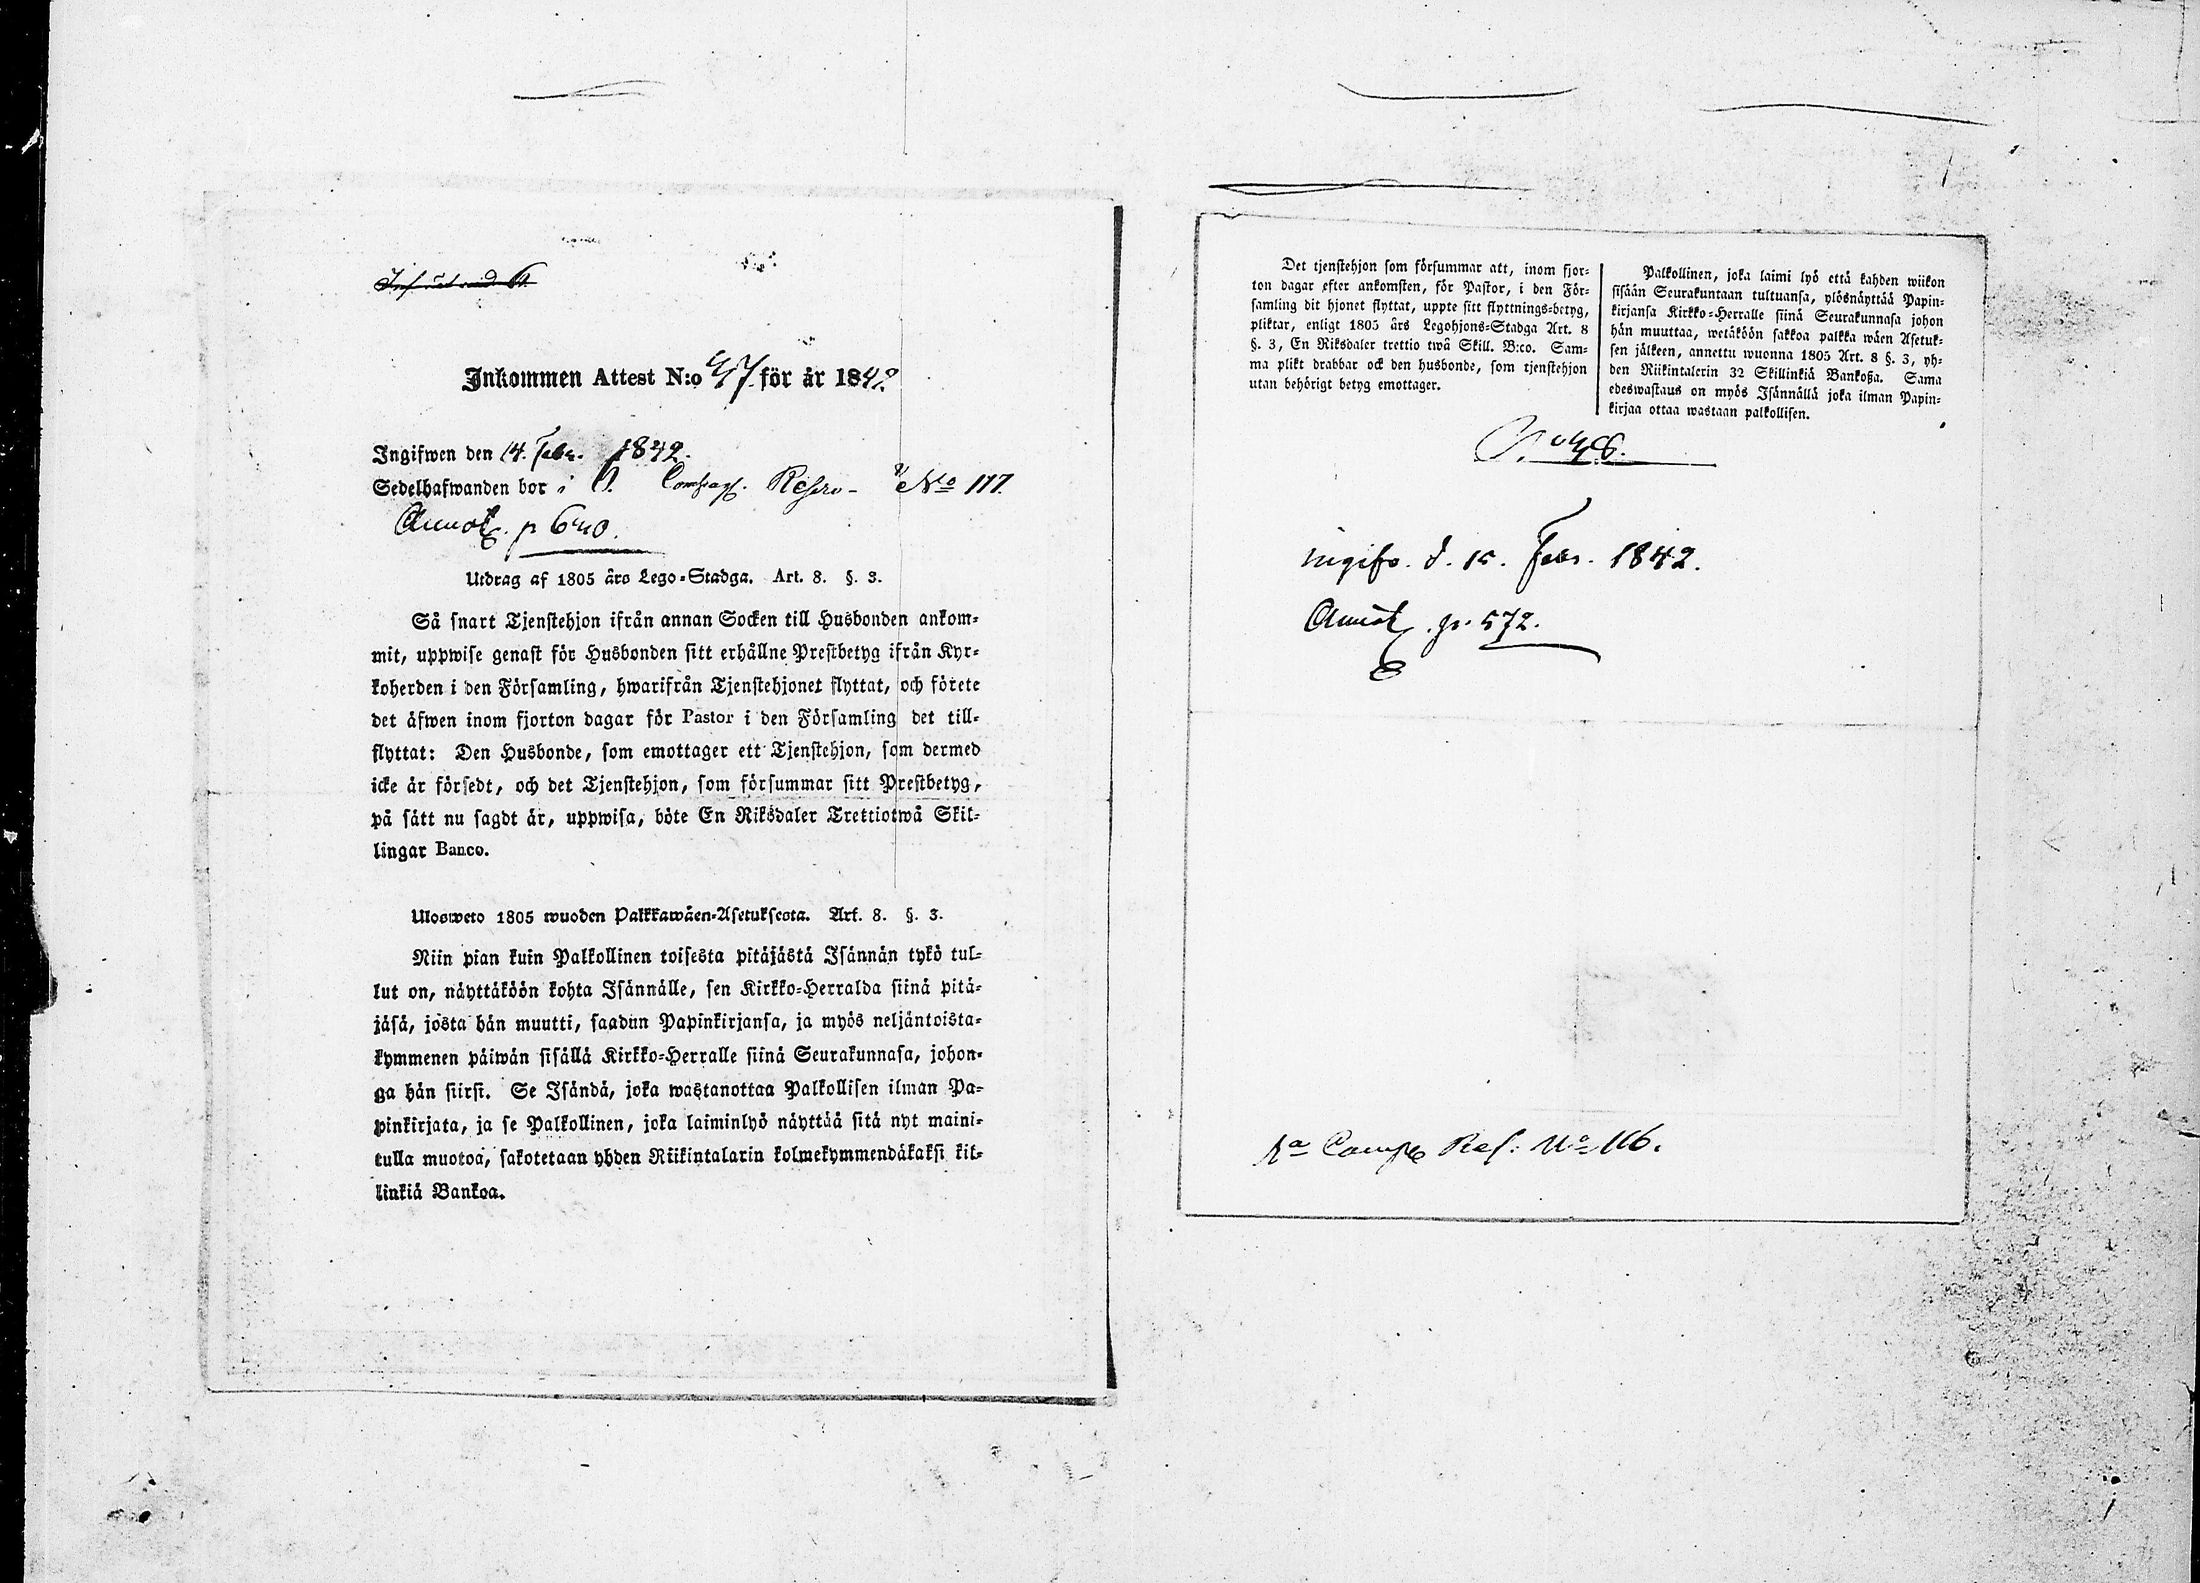 Inkommen Attest N:o 47 för år 1842
Ingifwen den 14. Febr. 1842.
Sedelhafwanden bor i Compagn. No 117.
Annot. p 640.
Utdrag af 1805 års Lego-Stadga. Art. 8. §. 3.
Så snart Tjenstehjon ifrån annan Socken till Husbonden ankom-
mit, uppwise genast för Husbonden sitt erhållne Prestbetyg ifrån Kyr-
koherden i den Församling, hwarifrån Tjenstehjonet flyttat, och förete
det äfwen inom fjorton dagar för Pastor i den Församling det till-
flyttat: Den Husbonde, som emottager ett Tjenstehjon, som dermed
icke är försedt, och det Tjenstehjon, som försummar sitt Prestbetyg,
på sätt nu sagdt är, uppwisa, böte En Riksdaler Trettiotwå Skil-
lingar Banco.
Ulosweto 1805 wuoden Palkkawäen-Asetuksesta. Art. 8. §. 3.
Niin pian kuin Palkollinen toisesta pitäjästä Isännän tykö tul-
lut on, näyttäköön kohta Isännälle, sen Kirkko-Herralda siinä pitä-
jäsä, josta hän muutti, saadun Papinkirjansa, ja myös neljäntoista-
kymmenen päiwän sisällä Kirkko-Herralle siinä Seurakunnasa, johon-
ga hän siirsi. Se Isändä, joka wastanottaa Palkollisen ilman Pa-
pinkirjata, ja se Palkollinen, joka laiminlyö näyttää sitä nyt maini-
tulla muotoa, sakotetaan yhden Riikintalarin kolmekymmendäkaksi kil-
linkiä Bankoa.
Det tjenstehjon som försummar att, inom fjor-
ton dagar efter ankomsten, för Pastor, i den För-
samling dit hjonet flyttat, uppte sitt flyttnings-betyg,
pliktar, enligt 1805 års Legohjons-Stadga Art. 8
§. 3, En Riksdaler trettio twå Skill. B:co. Sam-
ma plikt drabbar ock den husbonde, som tjenstehjon
utan behörigt betyg emottager.
Palkollinen, joka laimi lyö että kahden wiikon
sisään Seurakuntaan tultuansa, ylösnäyttää Papin-
kirjansa Kirkko-Herralle siinä Seurakunnasa johon
hän muuttaa, wetäköön sakkoa palkka wäen Asetuk-
sen jälkeen, annettu wuonna 1805 Art. 8 §. 3, yh-
den Riikintalerin 32 Skillinkiä Bankoßa. Sama
edeswastaus on myös Isännällä joka ilman Papin-
kirjaa ottaa wastaan palkollisen.
No 48.
ingifv. d. 15. Febr. 1842.
Annot. p. 572.
1a Comp Ref: No 116.